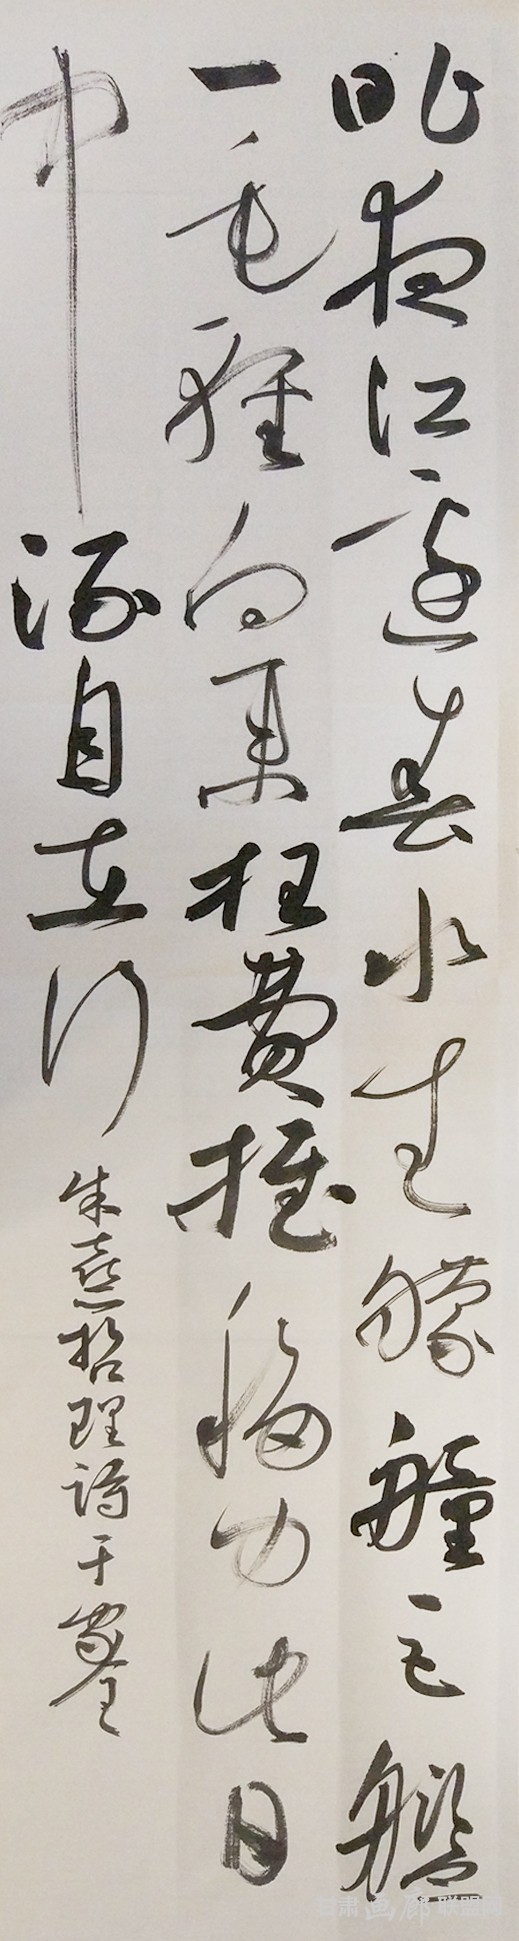 昨夜江邊春水生艨艟巨艦
一毛輕向来枉費推移力此日
中流自在行
朱熹哲理詩
甘肃画廊联盟网